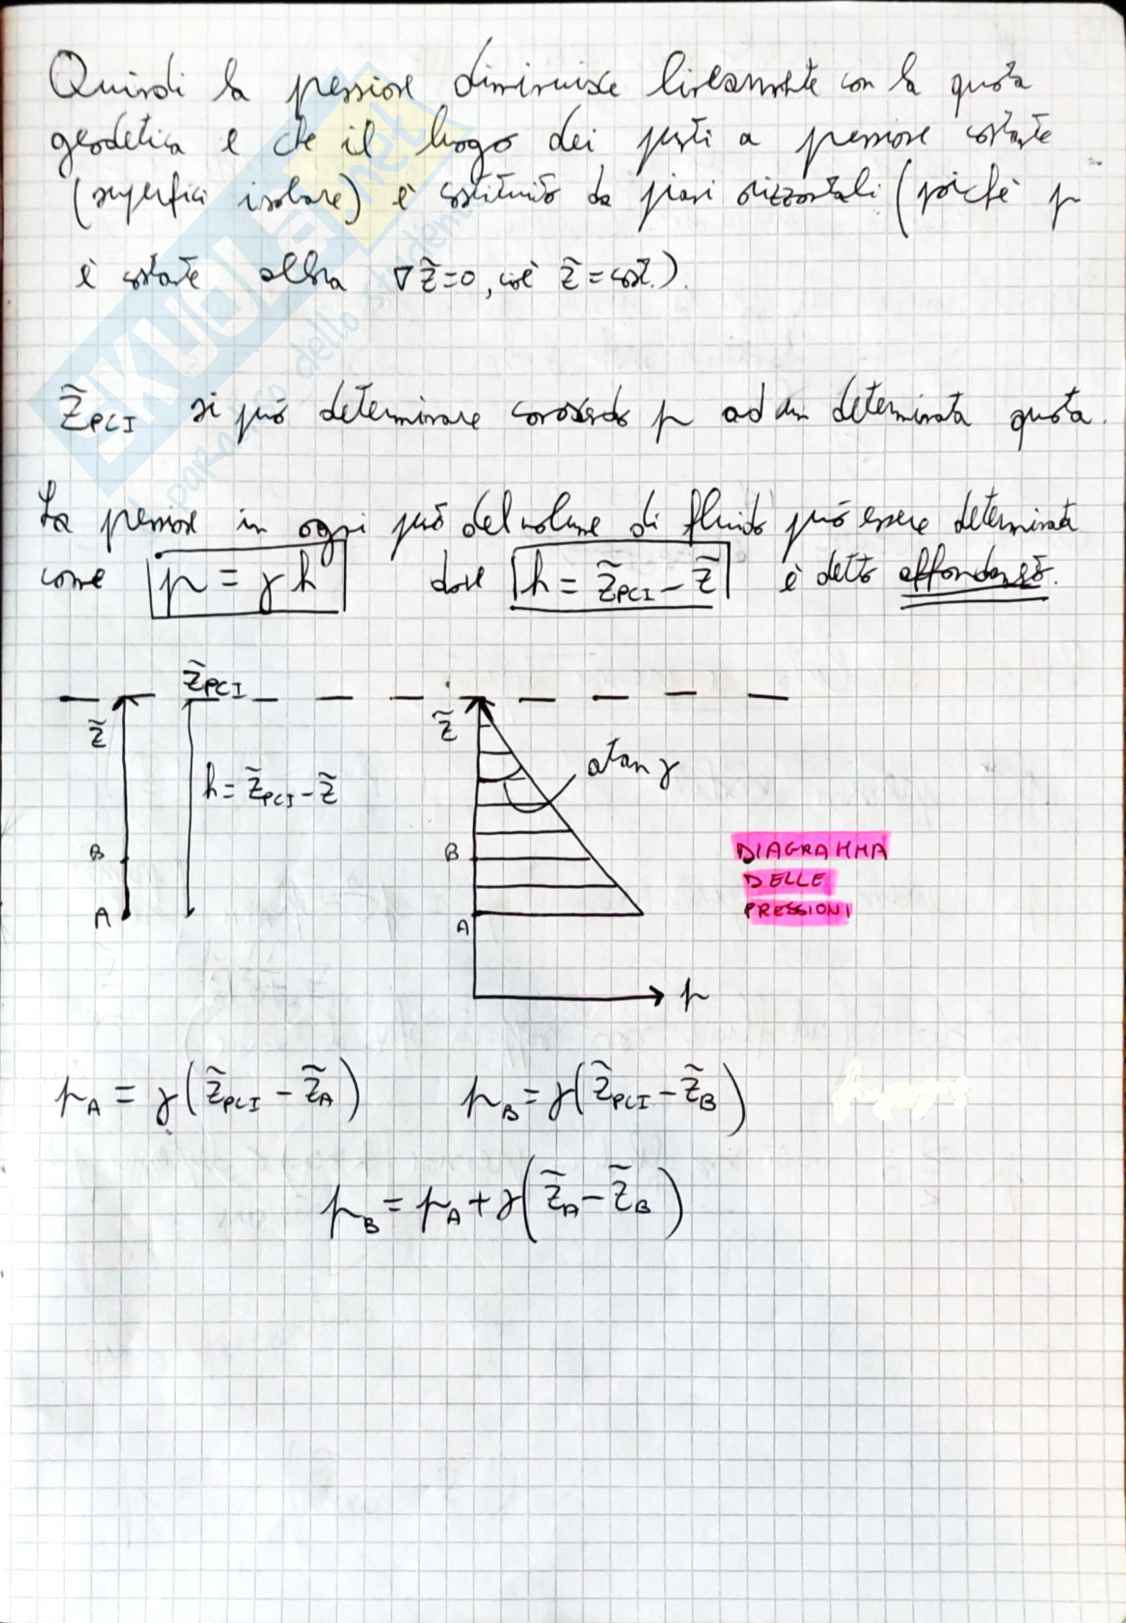 Quindi la pressione diminuisce linearmente con la quota
geodetica e che il luogo dei punti a pressione costante
(superfici isobare) è costituito da piani orizzontali (poiché p
è costante allora ∇z̃=0, cioè z̃=cost.).
z̃PCI si può determinare conoscendo p ad un determinata quota.
La pressione in ogni punto del volume di fluido può essere determinata
come p = γh dove h = z̃PCI - z̃ è detto affondamento.
z̃PCI
z̃ z̃
h = z̃PCI - z̃ atan γ
B B DIAGRAMMA
DELLE
A A PRESSIONI
p
pA = γ(z̃PCI - z̃A) pB = γ(z̃PCI - z̃B)
pB = pA + γ(z̃A - z̃B)
SKUOLA.net
il paradiso dello studente